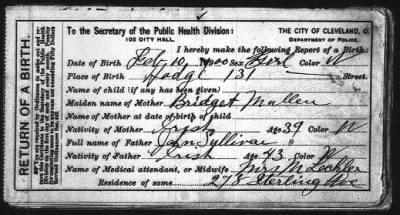 RETURN OF A BIRTH.
To the Secretary of the Public Health Division: THE CITY OF CLEVELAND, O.
102 CITY HALL. DEPARTMENT OF POLICE.
I hereby make the following Report of a Birth:
Date of Birth Feb 10, 1900 Sex Girl Color W
Place of Birth Hodge 131 Street.
Name of child (if any has been given)
Maiden name of Mother Bridget Mallen
Name of Mother at date of birth of child
Nativity of Mother Irish Age 39 Color W
Full name of Father John Sullivan
Nativity of Father Irish Age 43 Color W
Name of Medical attendant, or Midwife Mrs M Lechler
Residence of same 278 Sterling Ave